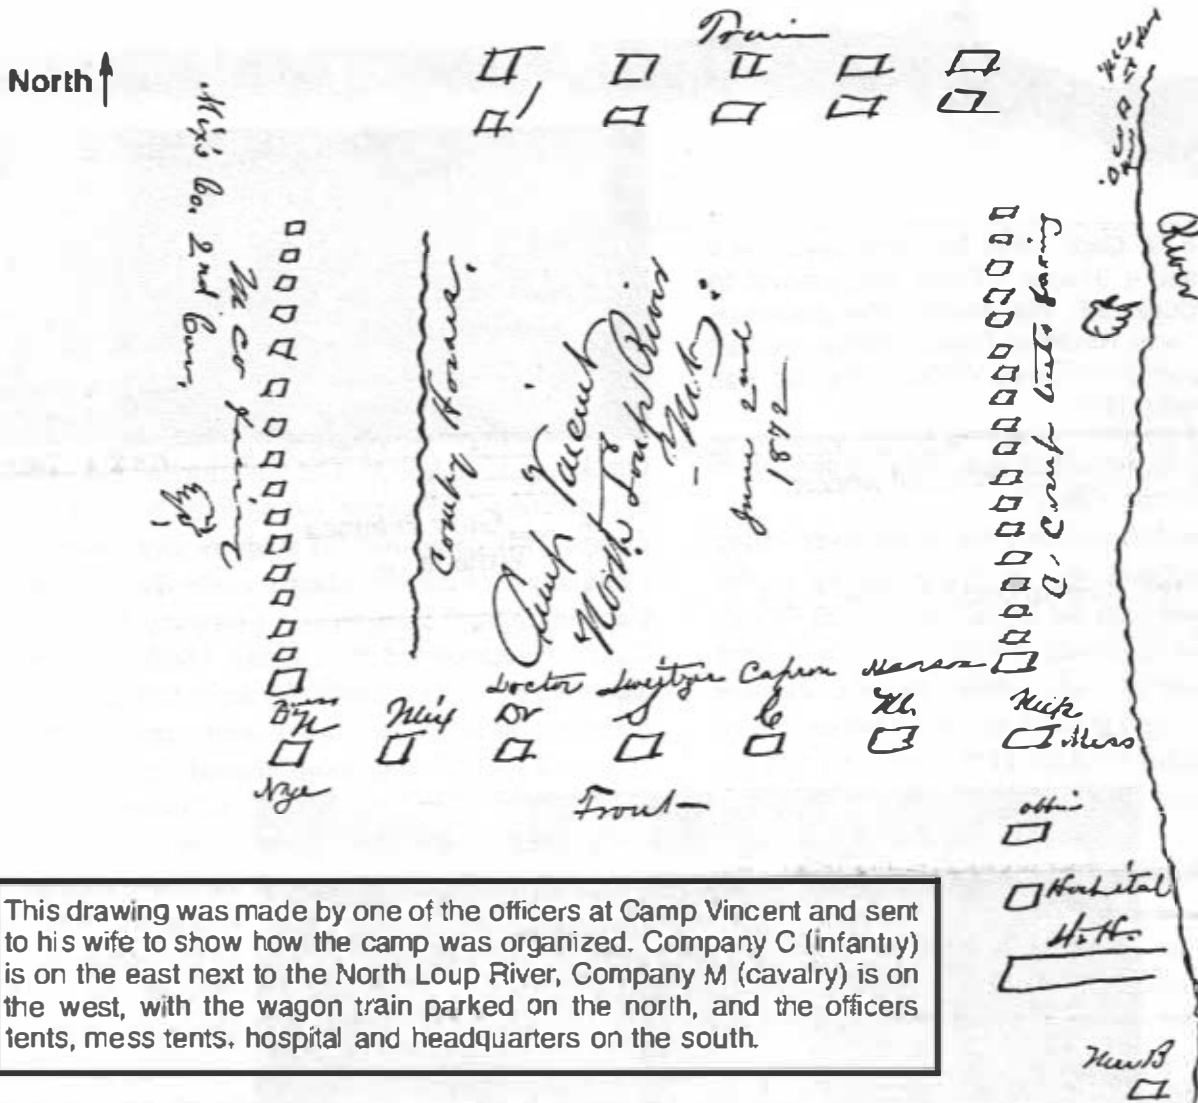 Train
North
River
Mix's Co. 2nd Cav.
M Co facing
Compy Horses.
Camp Vincent
North Loup River
- Neb.
June 2nd
1872
C. Comp tents facing
Doctor Sweitzer Capron Manson
Mix Dr S C
Mess
Nye
Front
Office
Hospital
H.H.
This drawing was made by one of the officers at Camp Vincent and sent
to his wife to show how the camp was organized. Company C (infantry)
is on the east next to the North Loup River, Company M (cavalry) is on
the west, with the wagon train parked on the north, and the officers
tents, mess tents, hospital and headquarters on the south.